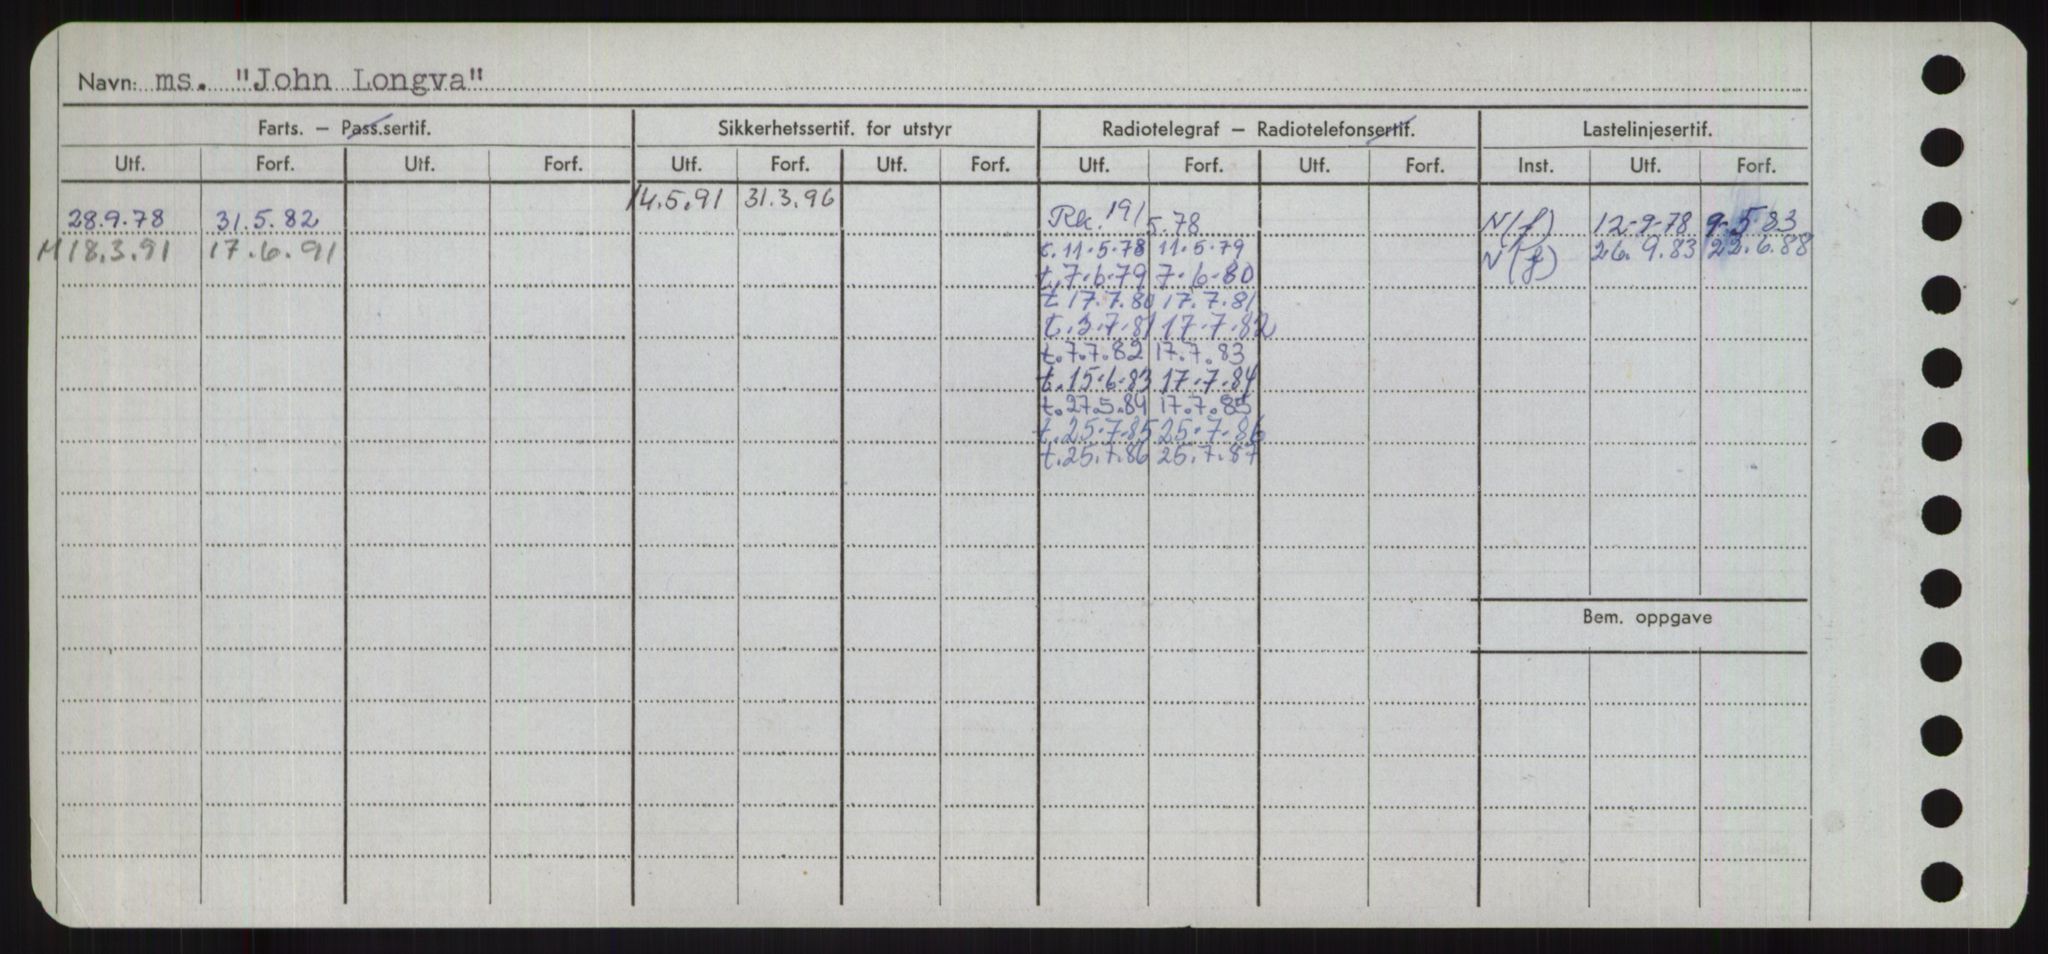 Navn: ms. "John Longva"
Farts. – Pass.sertif. Sikkerhetssertif. for utstyr Radiotelegraf – Radiotelefonsertif. Lastelinjesertif.
Utf. Forf. Utf. Forf. Utf. Forf. Utf. Forf. Utf. Forf. Utf. Forf. Inst. Utf. Forf.
14.5.91 31.3.96
28.9.78 31.5.82 Rk. 19/5.78 N(f) 12-9-78 9-5-83
M 18.3.91 17.6.91 t. 11.5.78 11.5.79 N(f) 26.9.83 22.6.88
t. 7.6.79 7.6.80
t 17.7.80 17.7.81
t. 3.7.81 17.7.82
t. 7.7.82 17.7.83
t. 15.6.83 17.7.84
t. 27.5.84 17.7.85
t. 25.7.85 25.7.86
t. 25.7.86 25.7.87
Bem. oppgave